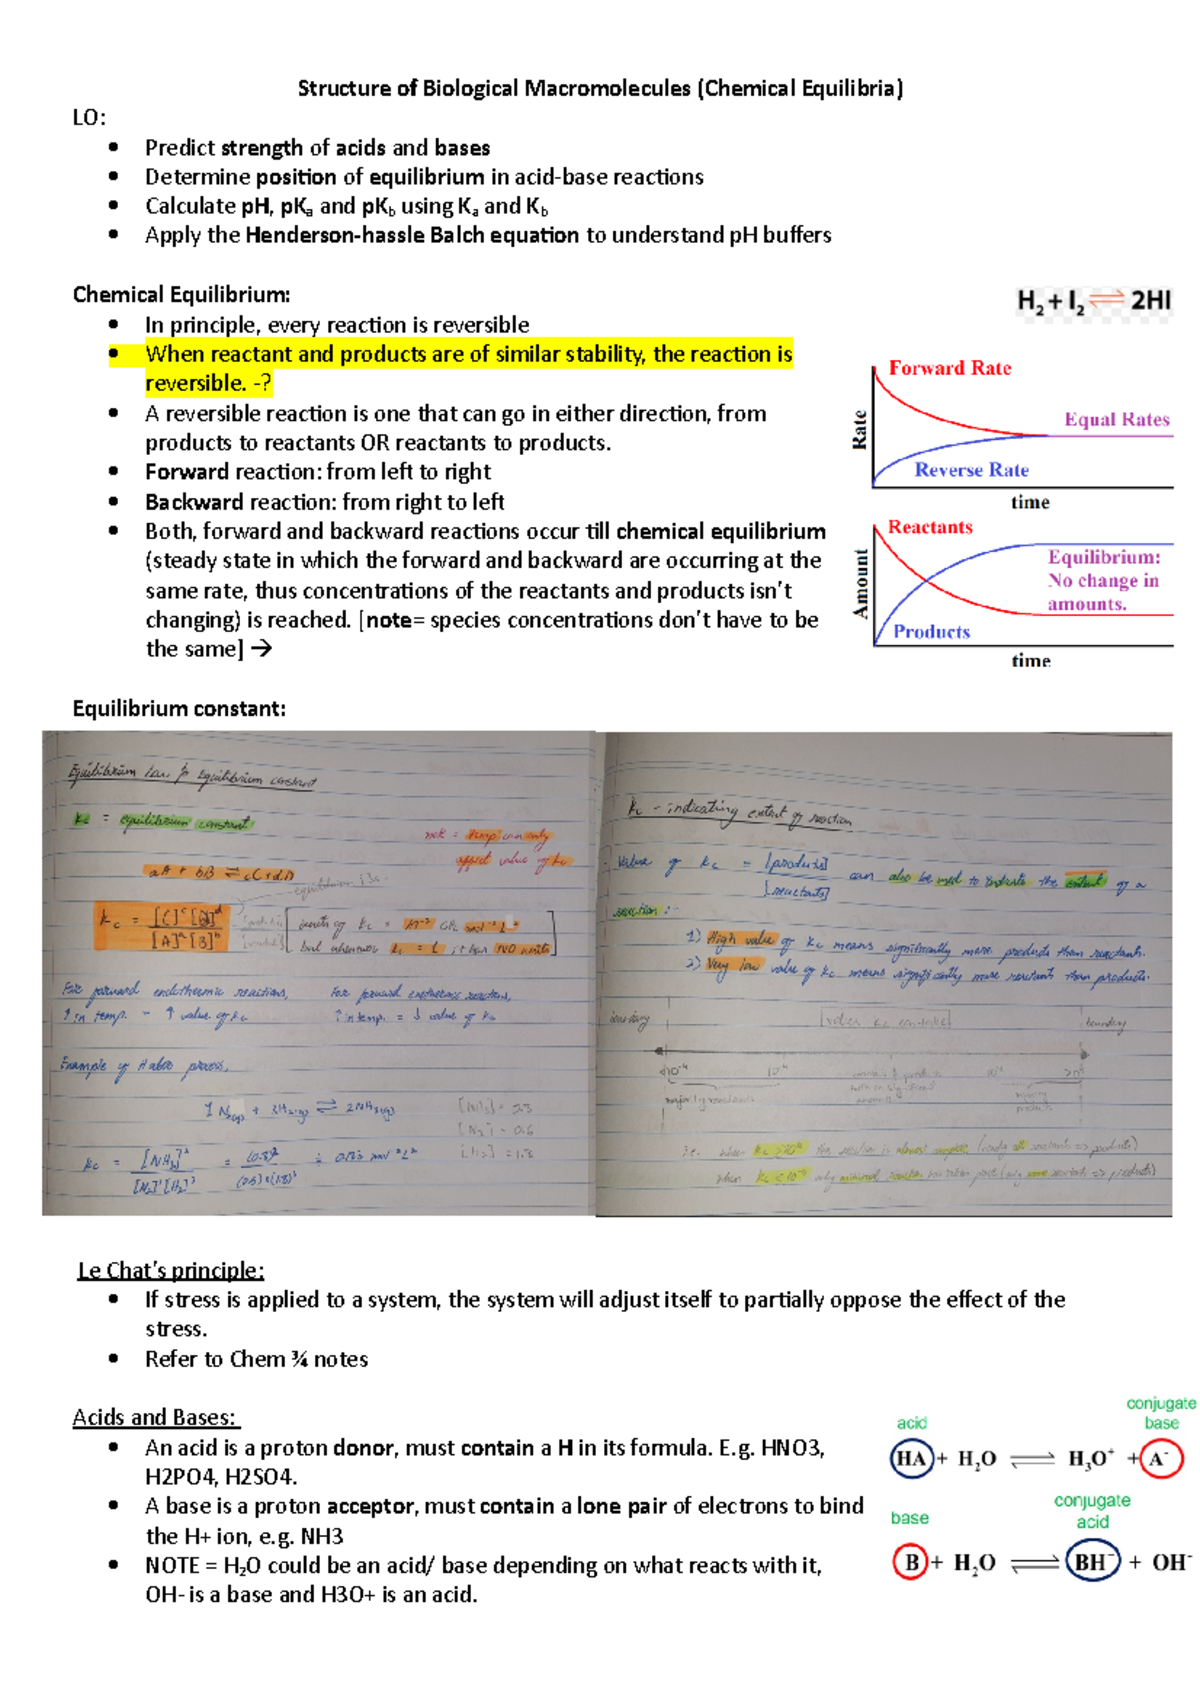 Structure of Biological Macromolecules (Chemical Equilibria)
LO:
• Predict strength of acids and bases
• Determine position of equilibrium in acid-base reactions
• Calculate pH, pKa and pKb using Ka and Kb
• Apply the Henderson-hassle Balch equation to understand pH buffers
Chemical Equilibrium:
• In principle, every reaction is reversible
• When reactant and products are of similar stability, the reaction is
reversible. -?
• A reversible reaction is one that can go in either direction, from
products to reactants OR reactants to products.
• Forward reaction: from left to right
• Backward reaction: from right to left
• Both, forward and backward reactions occur till chemical equilibrium
(steady state in which the forward and backward are occurring at the
same rate, thus concentrations of the reactants and products isn't
changing) is reached. [note= species concentrations don't have to be
the same] →
H2 + I2 ⇌ 2HI
Forward Rate
Equal Rates
Reverse Rate
Rate
time
Reactants
Equilibrium:
No change in
amounts.
Products
Amount
time
Equilibrium constant:
Equilibrium law & Equilibrium constant
Kc = equilibrium constant
note = temp can only
affect value of Kc
aA + bB ⇌ cC + dD
Kc = [C]^c [D]^d
[A]^a [B]^b
units of Kc =
For forward endothermic reactions,
↑ in temp. = ↑ value of Kc
For forward exothermic reactions,
↑ in temp. = ↓ value of Kc
Example of Haber process,
1 N2(g) + 3H2(g) ⇌ 2NH3(g)
Kc = [NH3]²
[N2]¹[H2]³
Kc - indicating extent of reaction
Value of Kc = [products] can also be used to indicate the extent of a
[reactants]
reaction:-
1) High value of Kc means significantly more products than reactants.
2) Very low value of Kc means significantly more reactant than products.
boundary
boundary
majority reactants
Le Chat's principle:
• If stress is applied to a system, the system will adjust itself to partially oppose the effect of the
stress.
• Refer to Chem ¾ notes
Acids and Bases:
• An acid is a proton donor, must contain a H in its formula. E.g. HNO3,
H2PO4, H2SO4.
• A base is a proton acceptor, must contain a lone pair of electrons to bind
the H+ ion, e.g. NH3
• NOTE = H₂O could be an acid/ base depending on what reacts with it,
OH- is a base and H3O+ is an acid.
acid
conjugate
base
HA + H2O ⇌ H3O+ + A-
base
conjugate
acid
B + H2O ⇌ BH- + OH-